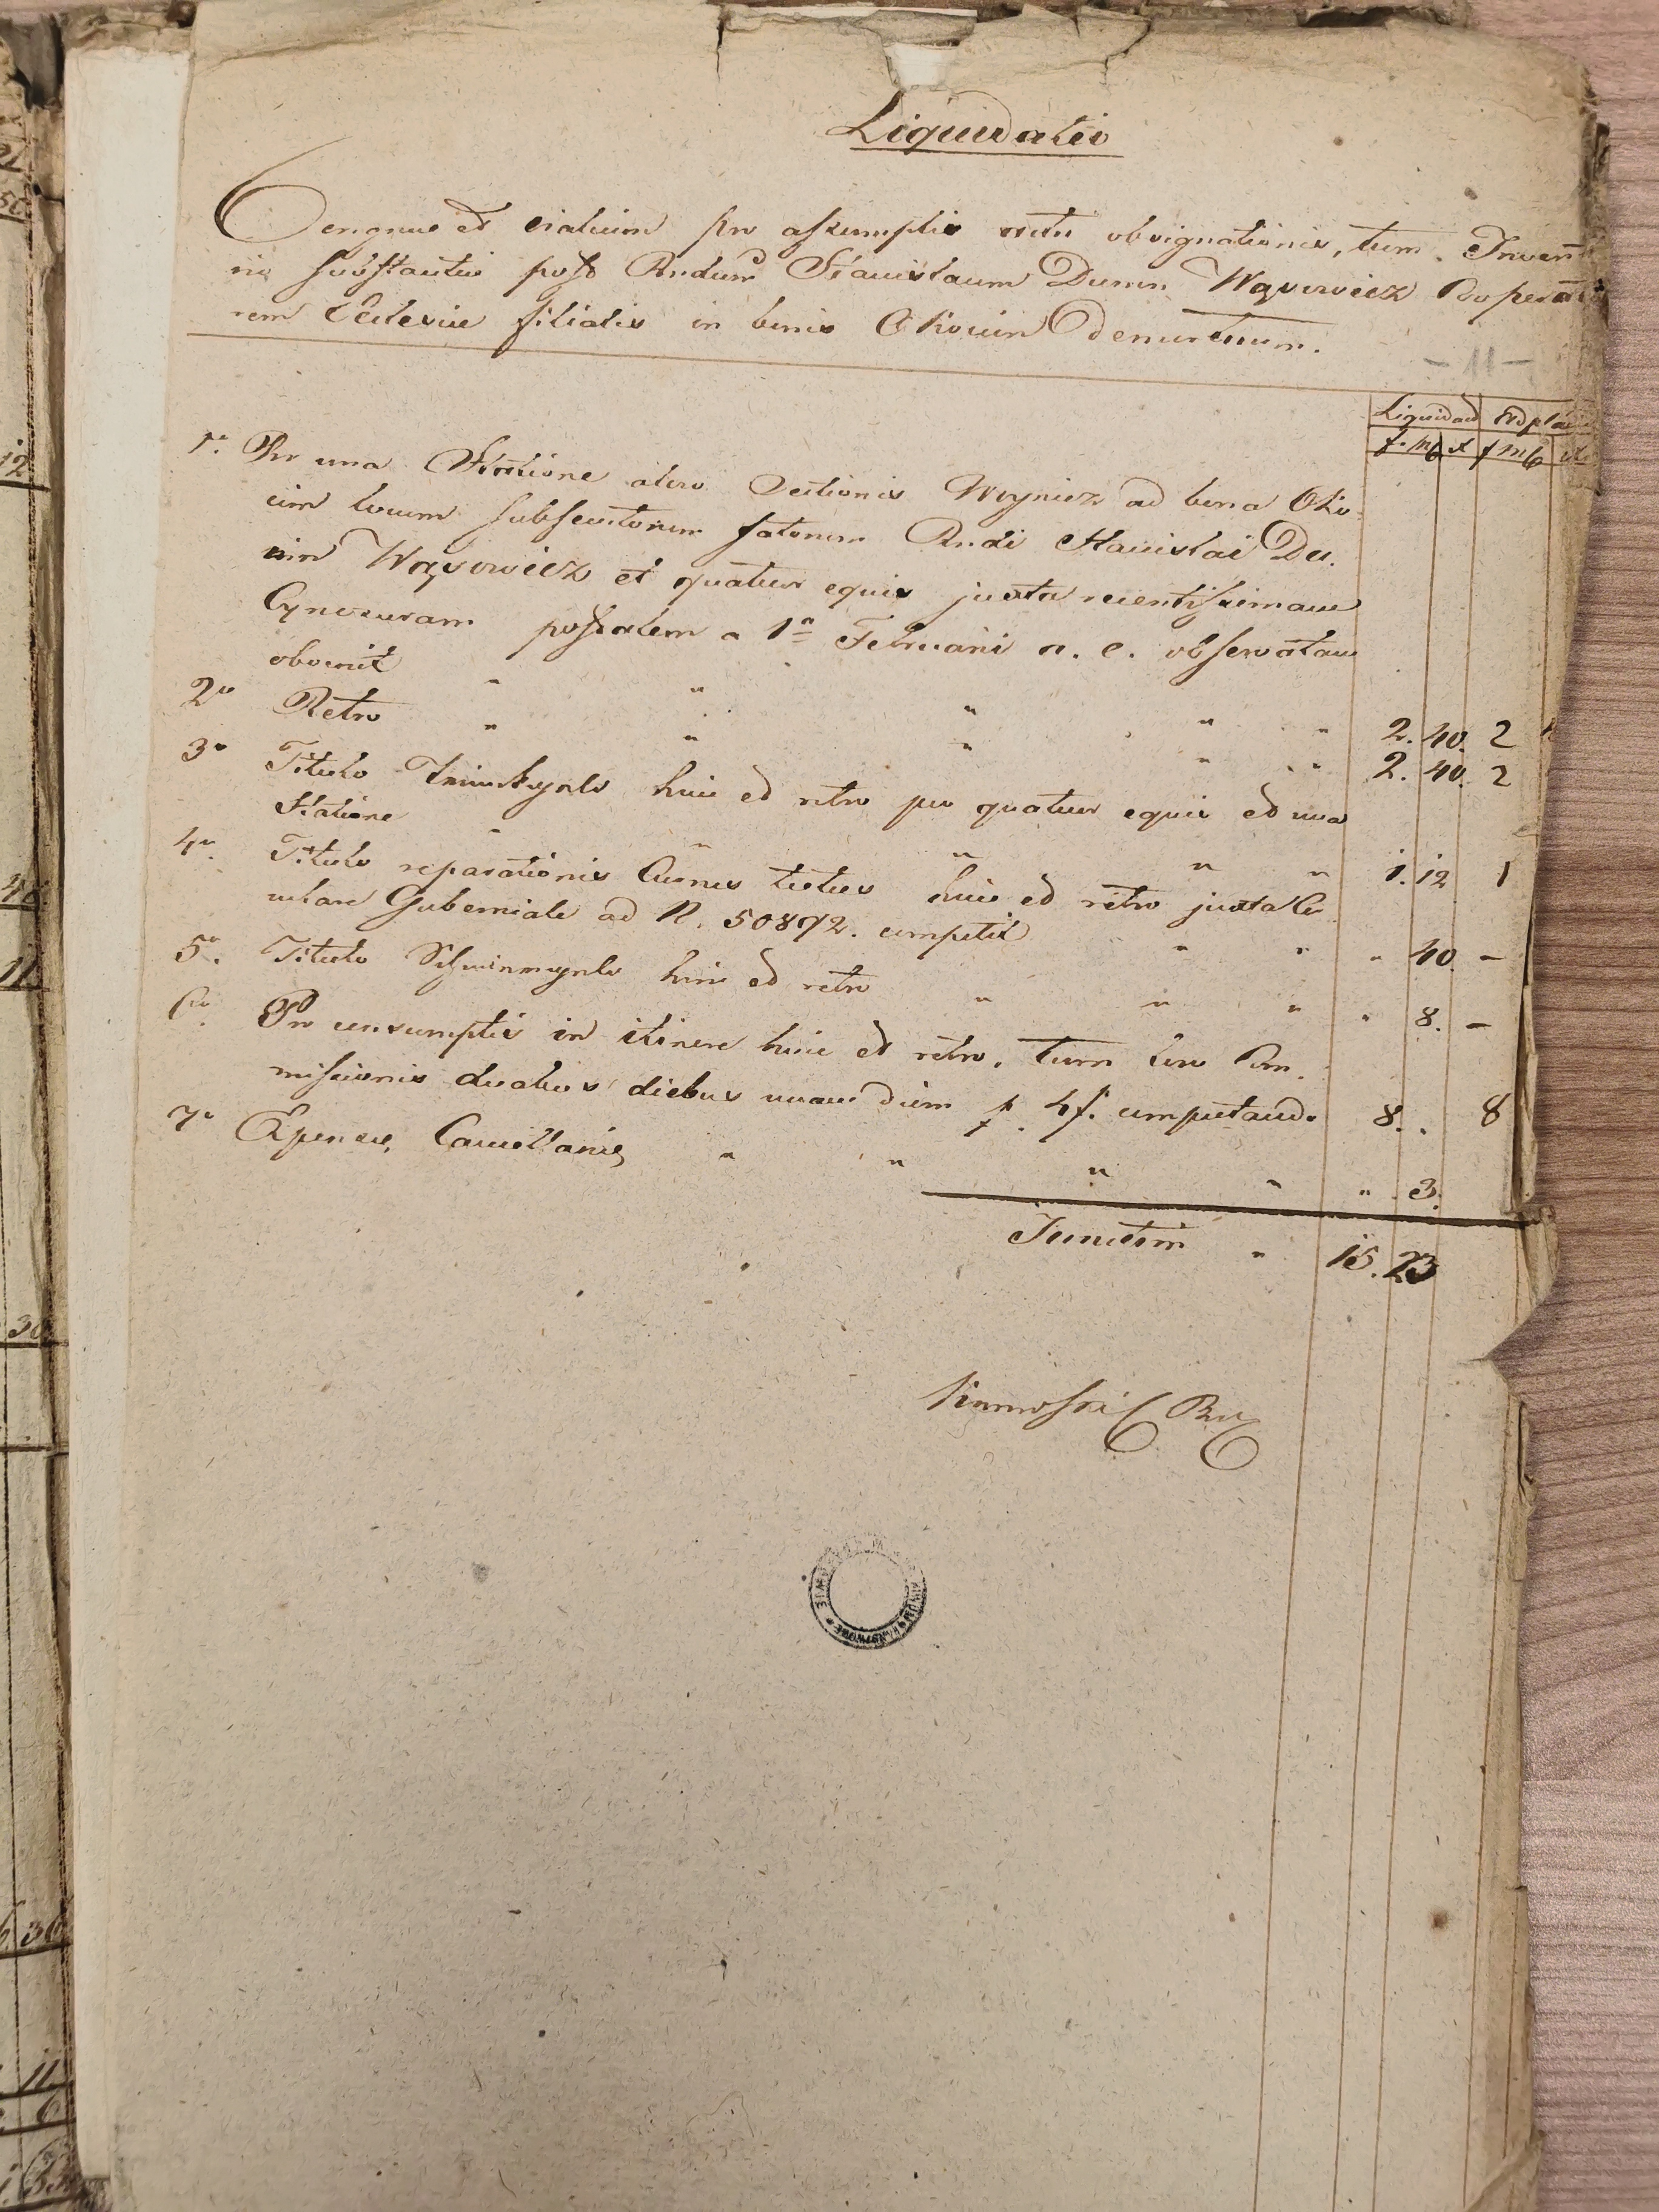 Liquidatio
et viaticum pro assumptis actu obsignationis, tum Invent
substantiae post Rndum Stanislaum Dunin Wąsowicz Cooperato
rem Ecclesiae filialis in bonis Okocim demortuum.
- 11 -
Liquidat Adpla
f. x f x
1o Pro una Statione a loco Sectionis Woynicz ad bona Oko
cim locum subsecutorum fatorum Rndi Stanislai Du
nin Wąsowicz et quatuor equis juxta recentissimam
Cynosuram postalem a 1a Februarii a. c. observatam
obvenit
2. 40. 2
2o Retro
2. 40. 2
3o Titulo Trinckgeld huic et retro pro quatuor equis et una
Statione
1. 12 1
4o Titulo reparationis Currus tectus huic et retro juxta Cir
culare Guberniale ad N. 50872. competit
40 -
5o Titulo huic et retro
8. -
6o Pro consumptis in itinere huic et retro, tum loco Com
missionis duobus diebus unam diem p. 4 f. computando
8. . 8
7o Expensae Cancellariae
3.
Summa 15. 23